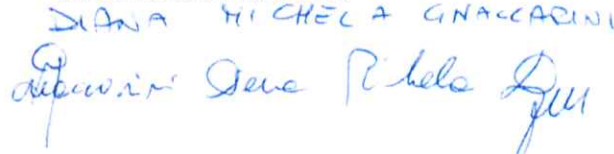 DIANA MICHELA GNACCARINI
Gnaccarini Diana Michela